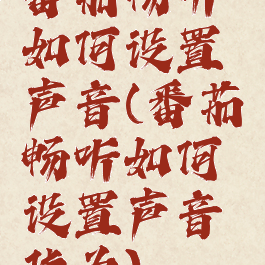 番茄畅听
如何设置
声音(番茄
畅听如何
设置声音